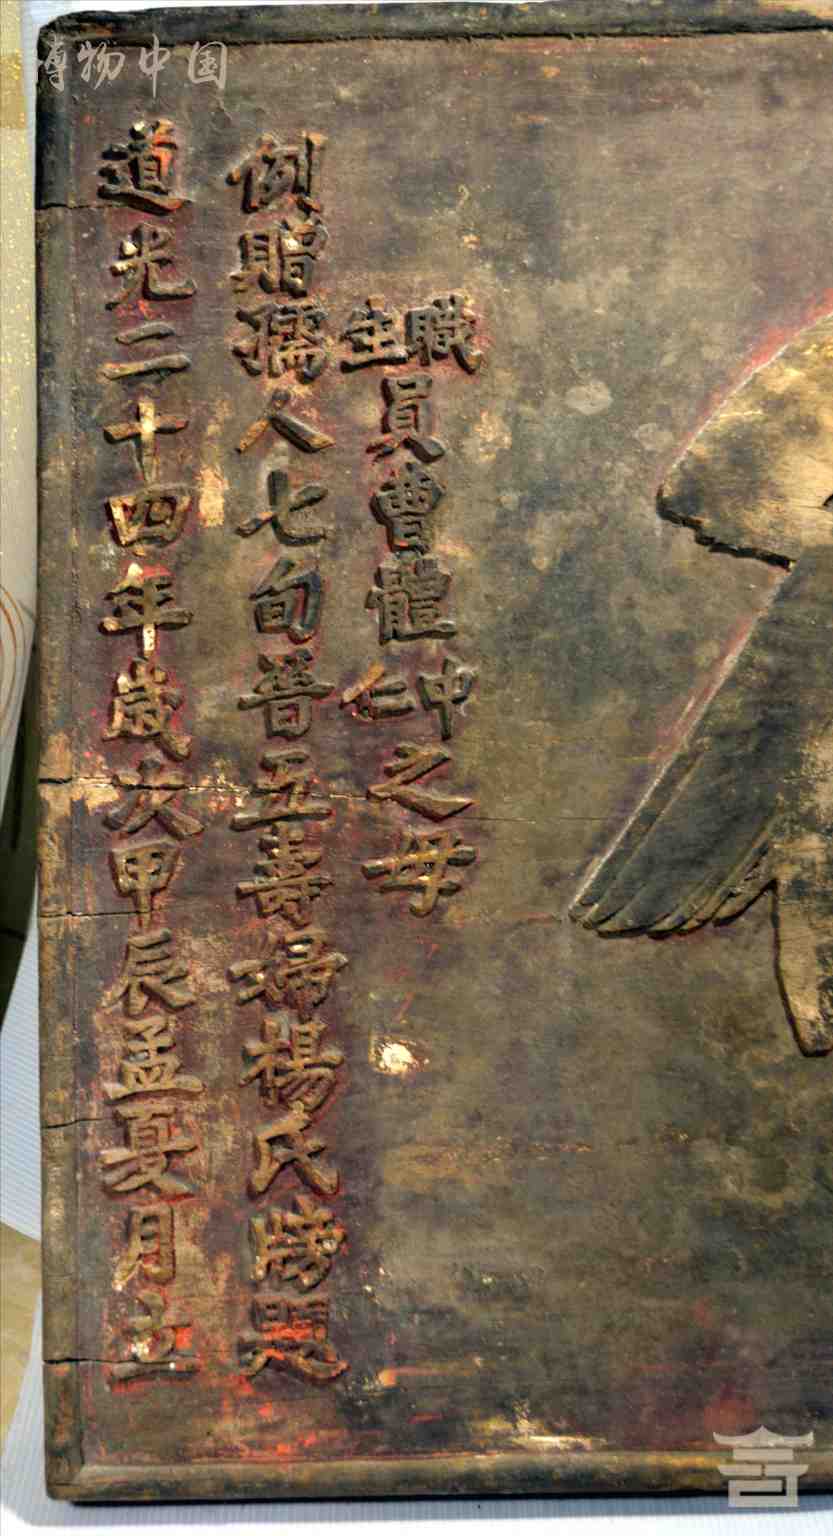 職
生
員曹體
中
仁
之母
例贈孺人七旬晉五壽婦楊氏牓題
道光二十四年歲次甲辰孟夏月立
博物中国